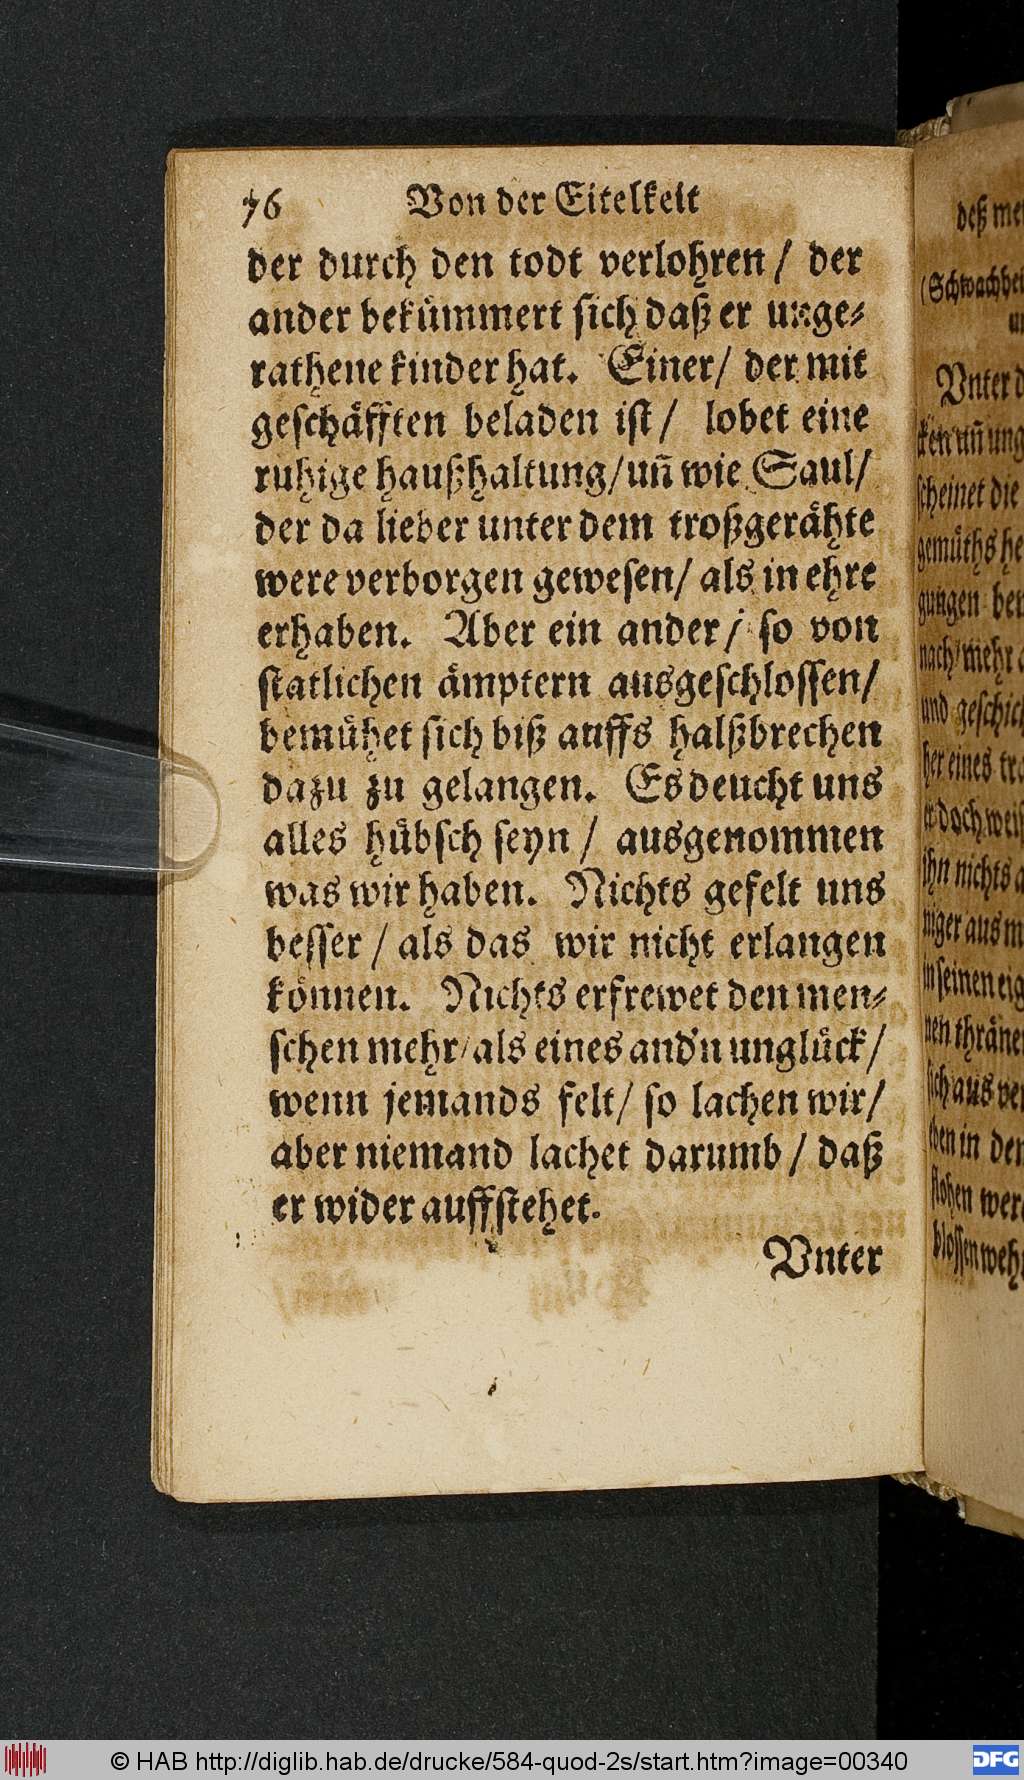 76 Von der Eitelkeit
der durch den todt verlohren / der
ander bekümmert sich daß er unge⸗
rathene kinder hat. Einer / der mit
geschäfften beladen ist / lobet eine
ruhige haußhaltung / uñ wie Saul /
der da lieber unter dem troßgerähte
were verborgen gewesen / als in ehre
erhaben. Aber ein ander / so von
statlichen ämptern ausgeschlossen /
bemühet sich biß auffs halßbrechen
dazu zu gelangen. Es deucht uns
alles hübsch seyn / ausgenommen
was wir haben. Nichts gefelt uns
besser / als das wir nicht erlangen
können. Nichts erfrewet den men⸗
schen mehr / als eines and'n unglück /
wenn jemands felt / so lachen wir /
aber niemand lachet darumb / daß
er wider auffstehet.
Vnter
deß
(Schwachhei
Vnter d
ken uñ ung
scheinet die
gemüths he
gungen
nach / mehr
und geschick
her eines
er doch
ihn nichts
niger aus
in seinen eig
nen thränen
sich aus
eben in der
flohen were
blossen
© HAB http://diglib.hab.de/drucke/584-quod-2s/start.htm?image=00340
DFG